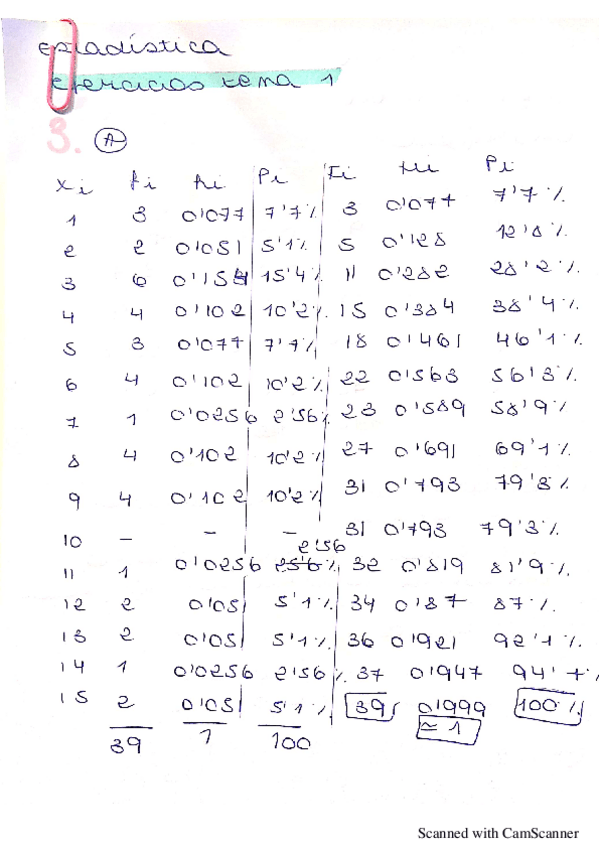 Estadística
ejercicios tema 1
3. A
xi fi hi Pi Fi Hi Pi
1 3 0'077 7'7% 3 0'077 7'7%
2 2 0'051 5'1% 5 0'128 12'8%
3 6 0'154 15'4% 11 0'282 28'2%
4 4 0'102 10'2% 15 0'384 38'4%
5 3 0'077 7'7% 18 0'461 46'1%
6 4 0'102 10'2% 22 0'563 56'3%
7 1 0'0256 2'56% 23 0'589 58'9%
8 4 0'102 10'2% 27 0'691 69'1%
9 4 0'102 10'2% 31 0'793 79'3%
10 - - - 31 0'793 79'3%
2'56
11 1 0'0256 25'6% 32 0'819 81'9%
12 2 0'051 5'1% 34 0'87 87%
13 2 0'051 5'1% 36 0'921 92'1%
14 1 0'0256 2'56% 37 0'947 94'7%
15 2 0'051 5'1% 39 0'999 100%
39 1 100 ≃ 1
Scanned with CamScanner